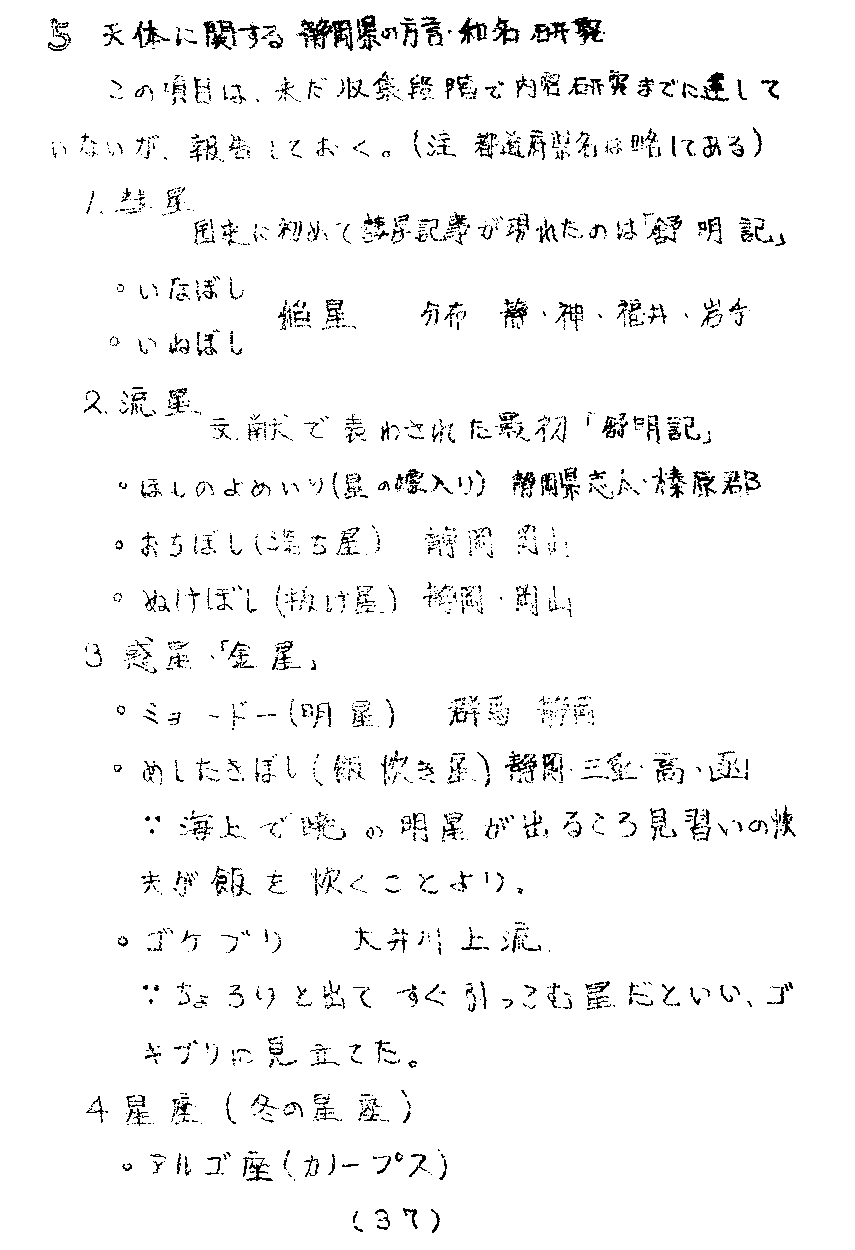 5 天体に関する静岡県の方言・和名研究
この項目は、未だ収集段階で内容研究までに達して
いないが、報告しておく。(注 都道府県名は略してある)
1. 彗星
国史に初めて彗星記事が現れたのは「舒明記」
◦ いなぼし
◦ いぬぼし
星 分布 静・神・福井・岩手
2. 流星
文献で表わされた最初「舒明記」
◦ ほしのよめいり(星の嫁入り) 静岡県志太・榛原郡
◦ おちぼし(落ち星) 静岡 岡山
◦ ぬけぼし(抜け星) 静岡・岡山
3 惑星・「金星」
◦ ミョードー(明星) 群馬 静岡
◦ めしたきぼし(飯炊き星) 静岡・三重・高・
∵ 海上で暁の明星が出るころ見習いの
夫が飯を炊くことより。
◦ ゴケブリ 大井川上流
∵ ちょろりと出てすぐ引っこむ星だといい、ゴ
キブリに見立てた。
4 星座(冬の星座)
◦ アルゴ座(カノープス)
(37)